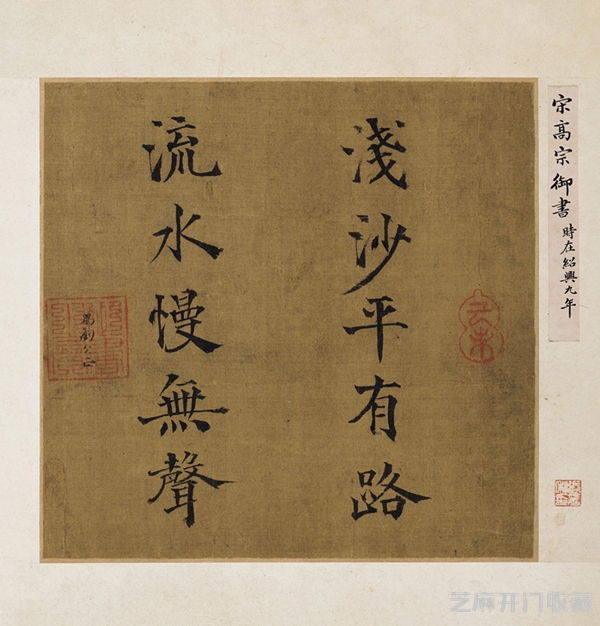 淺沙平有路
流水慢無聲
宋高宗御書
時在紹興九年
芝麻开门收藏